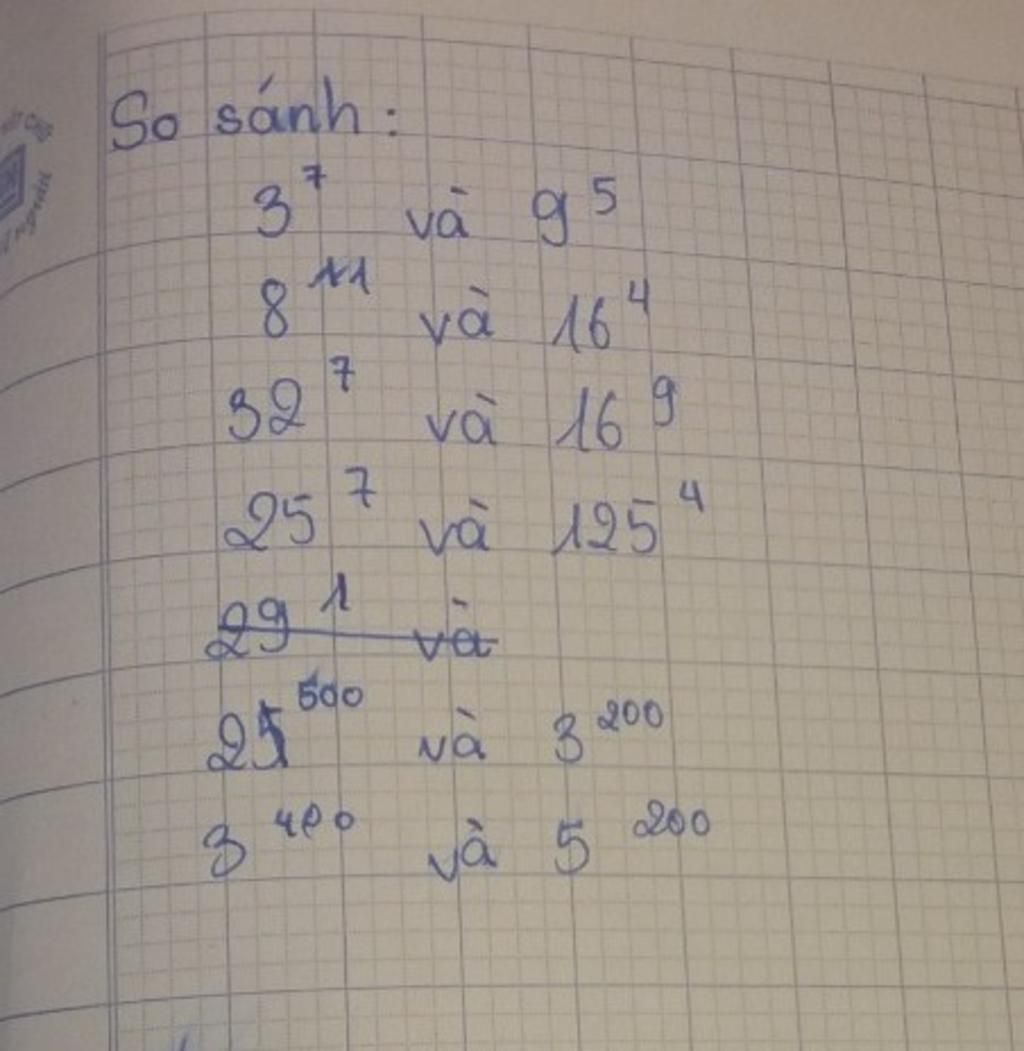 So sánh :
3⁷ và 9⁵
8¹¹ và 16⁴
32⁷ và 16⁹
25⁷ và 125⁴
29¹ và
25⁵⁰⁰ và 3²⁰⁰
3⁴⁰⁰ và 5²⁰⁰